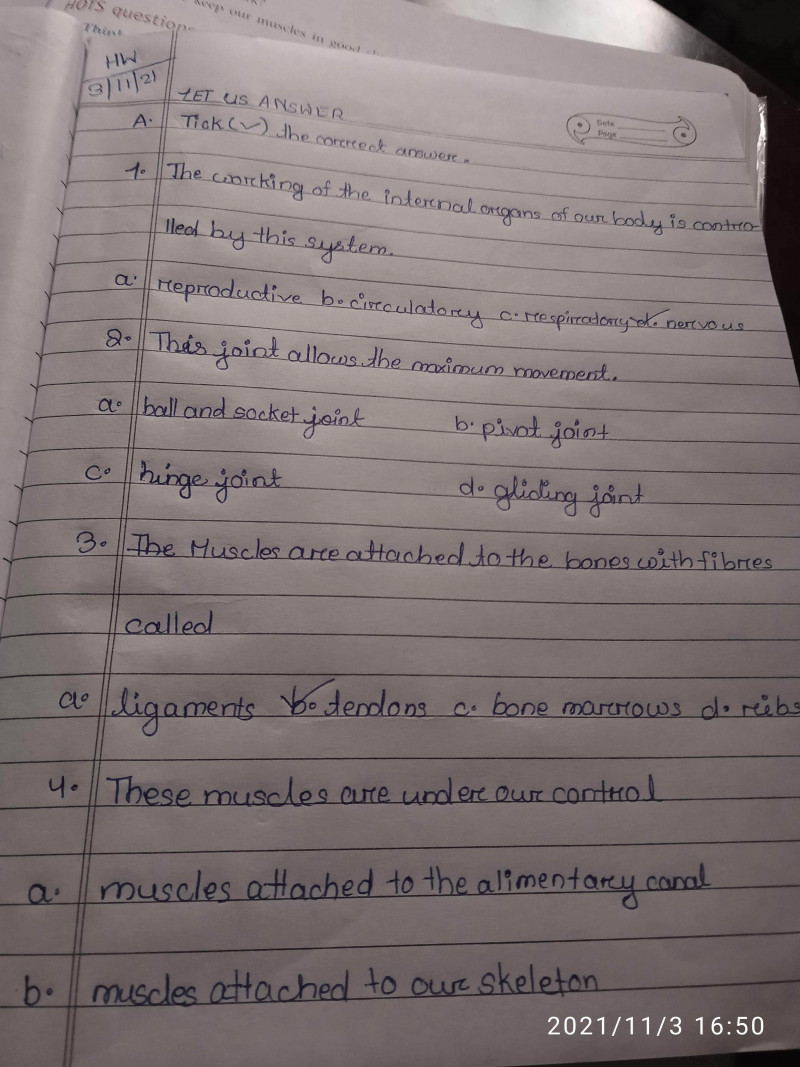 HOTS question
keep our muscles in good
Think
HW
3/11/21
LET US ANSWER
Date
Page
A. Tick (✓) the correct answer.
1. The working of the internal organs of our body is contro-
lled by this system.
a. reproductive b. circulatory c. respiratory ✓d. nervous
2. This joint allows the maximum movement.
a. ball and socket joint b. pivot joint
c. hinge joint d. gliding joint
3. The Muscles are attached to the bones with fibres
called
a. ligaments ✓b. tendons c. bone marrows d. reibs
4. These muscles are under our control
a. muscles attached to the alimentary canal
b. muscles attached to our skeleton
2021/11/3 16:50